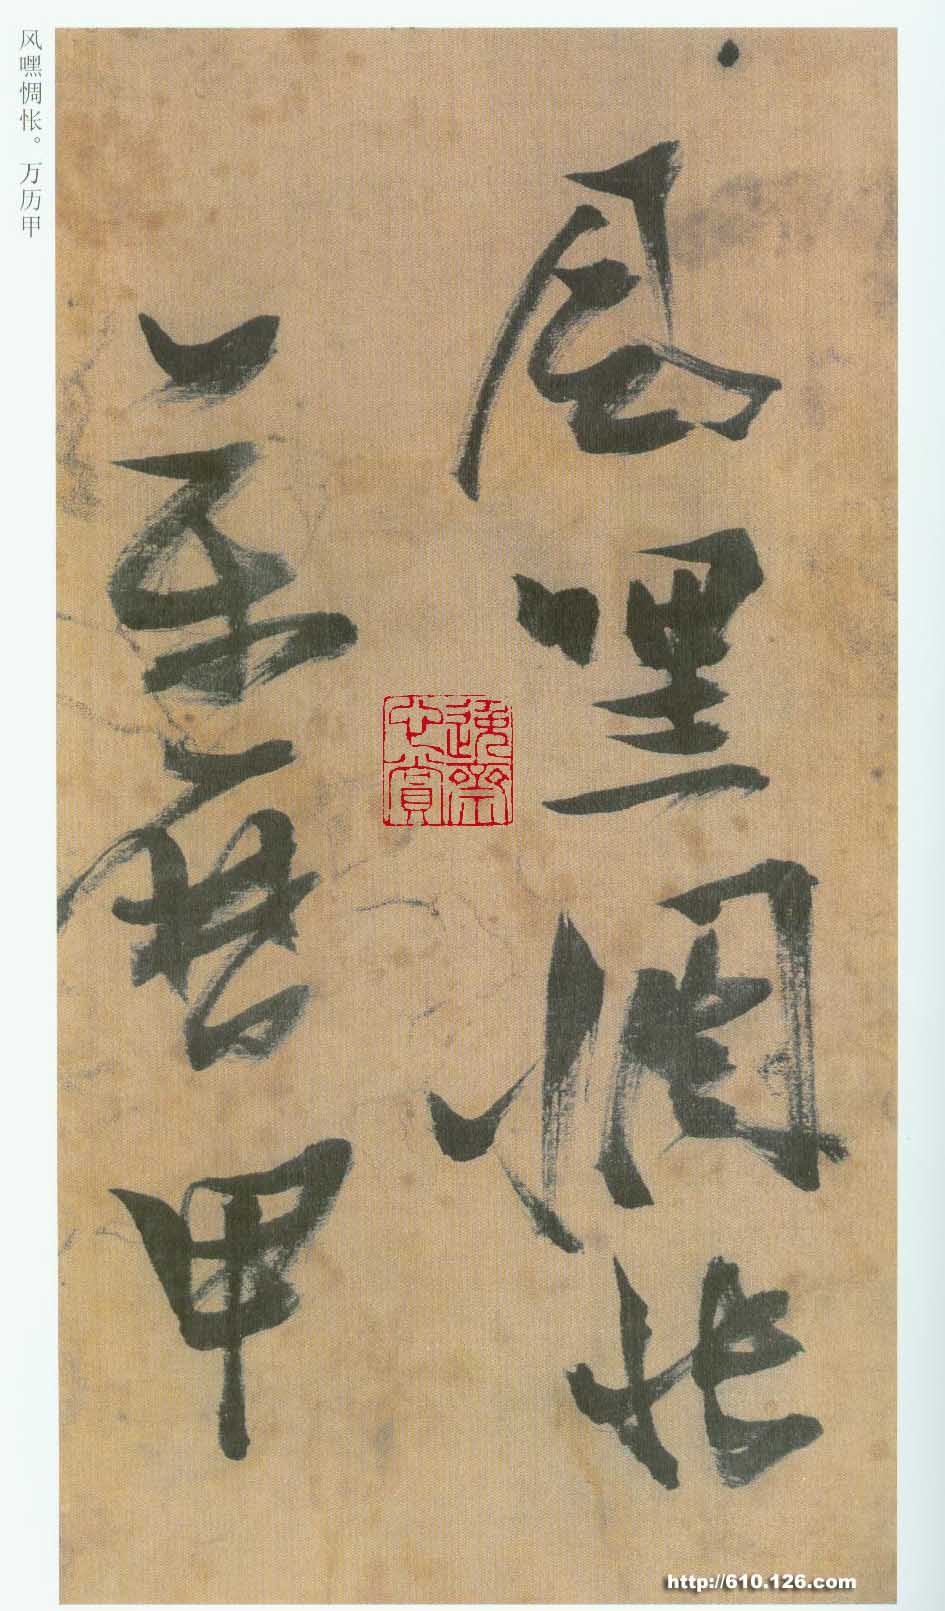 風嘿惆悵
萬曆甲
风嘿惆怅。万历甲
http://610.126.com